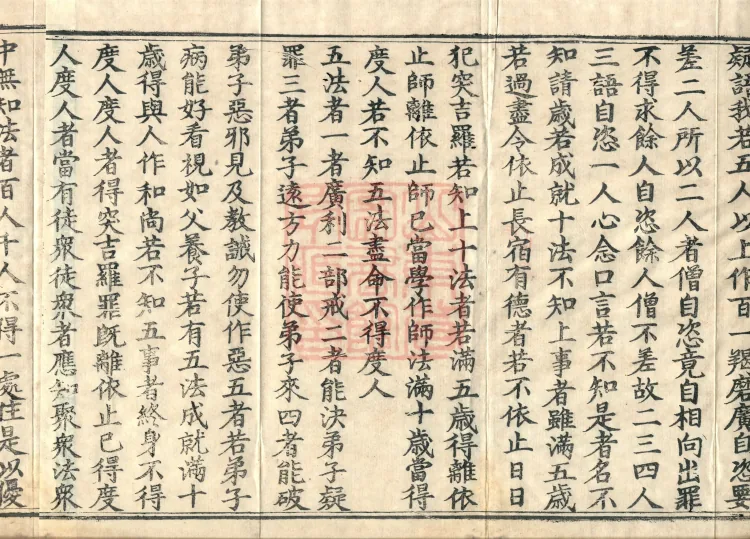 疑語我若五人以上作百一羯磨廣自恣要
差二人所以二人者僧自恣竟自相向出罪
不得求餘人自恣餘人僧不差故二三四人
三語自恣一人心念口言若不知是者名不
知請歲若成就十法不知上事者雖滿五歲
若過盡令依止長宿有德者若不依止日日
犯突吉羅若知上十法者若滿五歲得離依
止師離依止師已當學作師法滿十歲當得
度人若不知五法盡命不得度人
五法者一者廣利二部戒二者能決弟子疑
罪三者弟子遠方力能使弟子來四者能破
弟子惡邪見及教誡勿使作惡五者若弟子
病能好看視如父養子若有五法成就滿十
歲得與人作和尚若不知五事者終身不得
度人度人者得突吉羅罪既離依止已得度
人度人者當有徒衆徒衆者應知聚衆法衆
中無知法者百人千人不得一處住是以優